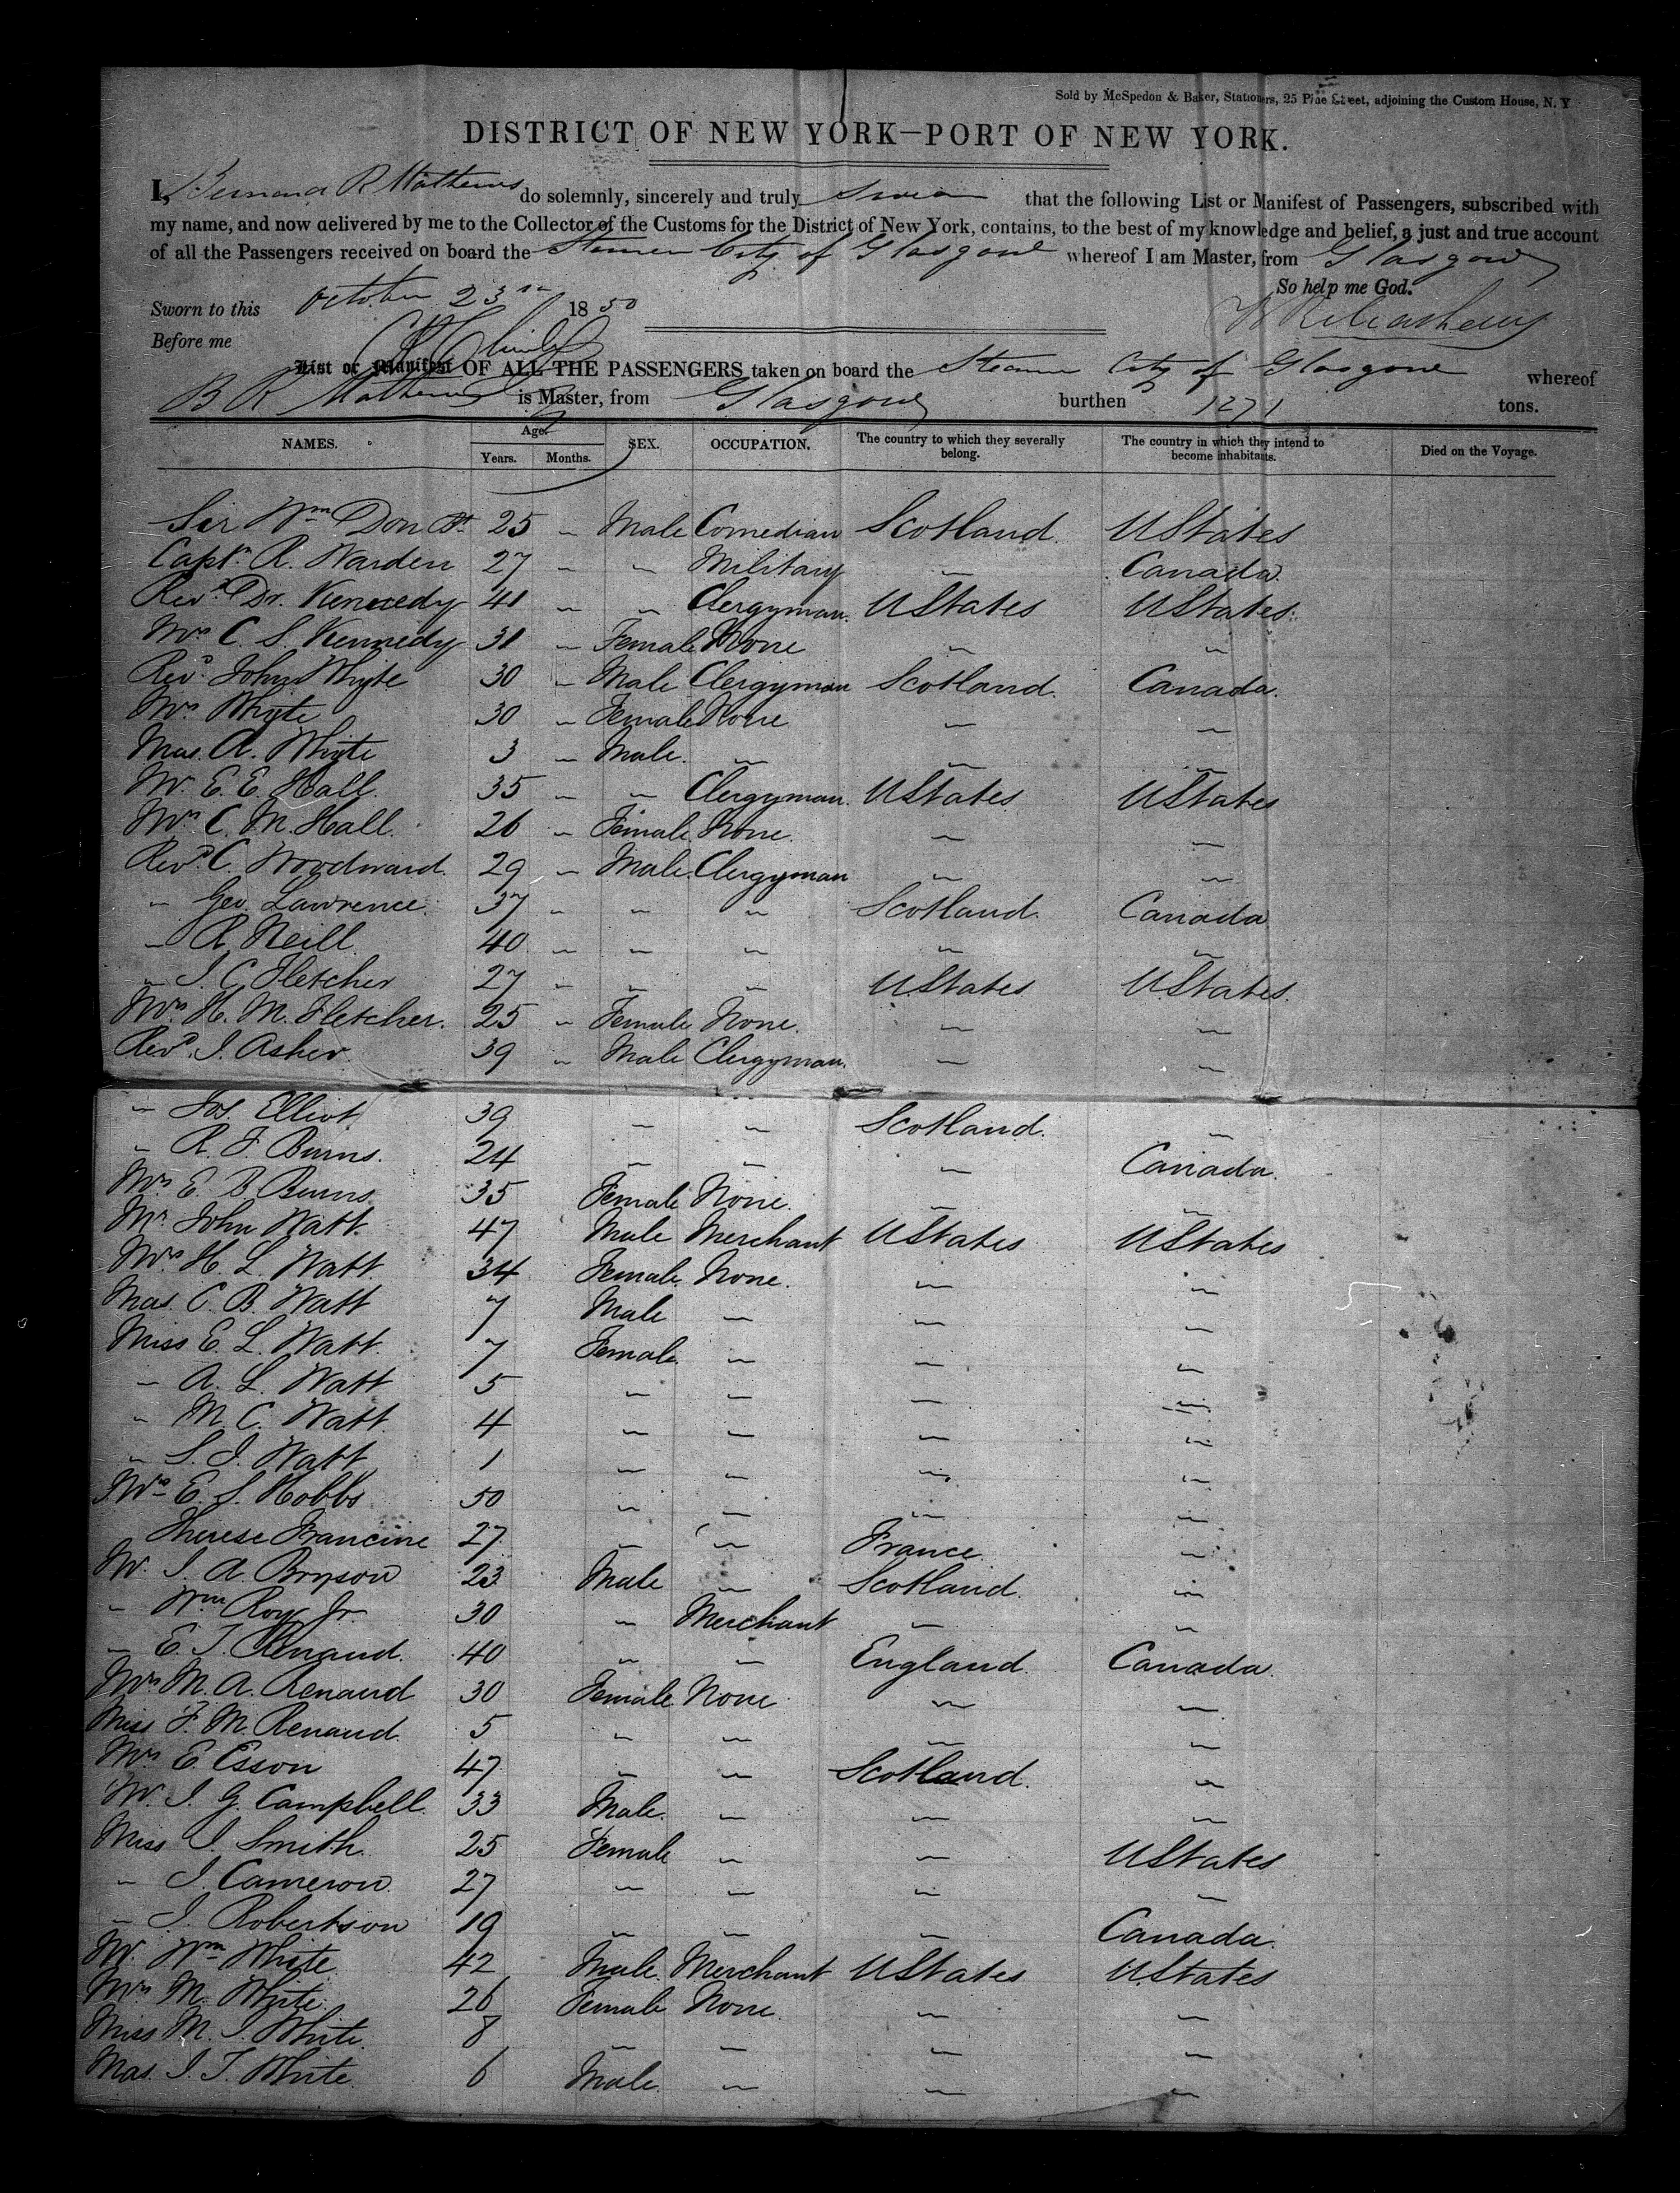 Sold by McSpedon & Baker, Stationers, 25 Pine Street, adjoining the Custom House, N. Y
DISTRICT OF NEW YORK—PORT OF NEW YORK.
I, Bernard R Mathews do solemnly, sincerely and truly swear that the following List or Manifest of Passengers, subscribed with
my name, and now delivered by me to the Collector of the Customs for the District of New York, contains, to the best of my knowledge and belief, a just and true account
of all the Passengers received on board the Steamer City of Glasgow whereof I am Master, from Glasgow
So help me God.
Sworn to this October 23rd 1850
B R Mathews
Before me
List or Manifest OF ALL THE PASSENGERS taken on board the Steamer City of Glasgow whereof
B R Mathews is Master, from Glasgow burthen 1271 tons.
NAMES. Age. SEX. OCCUPATION. The country to which they severally belong. The country in which they intend to become inhabitants. Died on the Voyage.
Years. Months.
Sir Wm Don Bt. 25 " Male Comedian Scotland. UStates
Captn. R. Warden 27 " " Military " Canada.
Revd. Dr. Kennedy 41 " " Clergyman. UStates UStates.
Mrs C. S. Kennedy 31 " Female None " "
Revd. John Whyte 30 " Male Clergyman Scotland. Canada.
Mrs Whyte 30 " Female None " "
Mas. A. Whyte 3 " Male. " " "
Mr. E. E. Hall. 35 " " Clergyman. UStates UStates
Mrs C. M. Hall. 26 " Female None. " "
Revd. C. Woodward. 29 " Male. Clergyman " "
" Geo. Lawrence. 37 " " " Scotland. Canada
" R. Neill 40 " " " " "
" J. C. Fletcher 27 " " " UStates UStates.
Mrs. H. M. Fletcher. 25 " Female None. " "
Revd. J. Asher. 39 " Male Clergyman. " "
" Jos. Elliot 39 " " Scotland. "
" R. F. Burns. 24 " " " Canada.
Mrs E. B. Burns 35 Female None. " "
Mr. John Watt. 47 Male Merchant UStates UStates
Mrs H. L. Watt. 34 Female None. " "
Mas. C. B. Watt 7 Male " " "
Miss E. L. Watt. 7 Female. " " "
" A. L. Watt 5 " " " "
" M. C. Watt. 4 " " " "
" S. J. Watt 1 " " " "
Mrs E. S. Hobbs 50 " " " "
Therese Francine 27 " " France. "
Mr. J. A. Bryson 23 Male " Scotland. "
" Wm Roy Jr. 30 " Merchant " "
" E. T. Renaud. 40 " " England. Canada.
Mrs M. A. Renaud 30 Female None " "
Miss F. M. Renaud. 5 " " " "
Mrs E. Esson 47 " " Scotland. "
Mr. J. G. Campbell. 33 Male. " " "
Miss J. Smith. 25 Female " " UStates
" J. Cameron. 27 " " " "
" J. Robertson 19 " " " Canada.
Mr. Wm White 42 Male. Merchant UStates UStates
Mrs M. White. 26 Female None. " "
Miss M. J. White. 8 " " " "
Mas. J. T. White. 6 Male. " " "